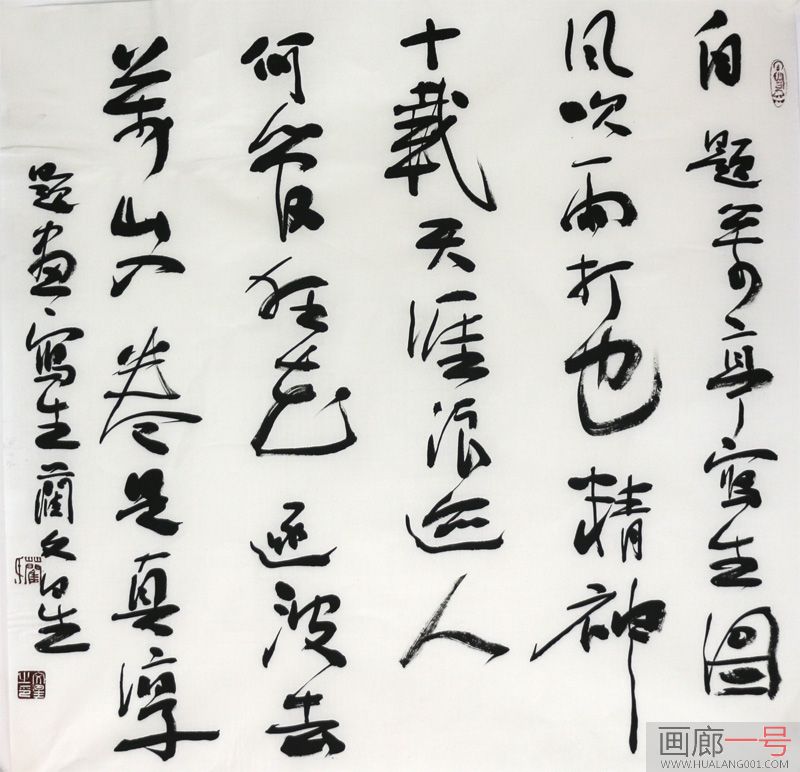 自题兰亭写生图
风吹雨打也精神
十载天涯浪迹人
何管狂花逐波去
万山入卷是真淳
题画写生蔺文
生
画廊一号
WWW.HUALANG001.COM